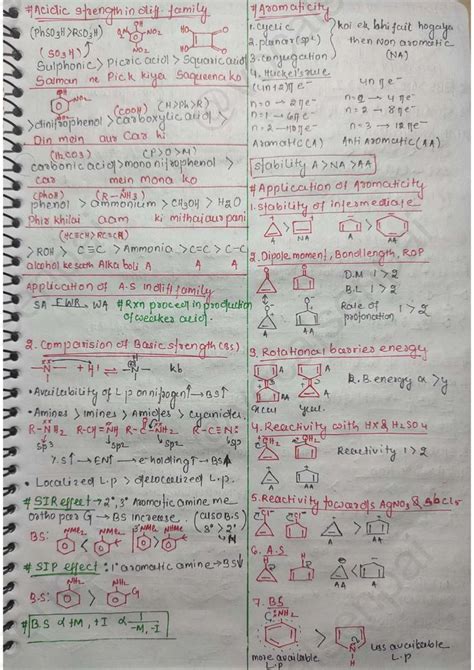 #Acidic strength in diff. family
(PhSO3H>RSO3H)
(SO3H)
Sulphonic > Picric acid > Squaric acid
Saiman ne Pick kiya Saqueena ko
(COOH) (H>Ph>R)
>dinitrophenol > carboxylic acid >
Din mein aur Car ki
(H2CO3) (P>O>M)
carbonic acid > mono nitrophenol >
car mein mona ko
(PhOH) (R-NH3)
phenol > ammonium > CH3OH > H2O
Phir khilai aam ki mithai aur pani
(HC≡CH>RC≡CH)
> ROH > C≡C > Ammonia > C=C > C-C
alcohol ke sath Alka boli A A A
Application of A-S in diff family
SA FWR WA #Rxn proceed in production of weaker acid.
2. Comparision of Basic strength (Bs)
-N- + H+ ⇌ -N- kb
• Availability of L.p on nitrogen↑→BS↑
• Amines > imines > Amides > cyanides.
R-NH2 R-CH=NH R-C-NH2 R-C≡N
sp3 sp2 sp
%S↑→EN↑→e- holding↑→BS↓
• Localized L.p > delocalized L.p.
#SIR effect → 2°, 3° Aromatic amine me
ortho par G → BS increase (also BS)
3° > 2°
BS:
NHMe NMe2 NHMe NMe2
#SIP effect: 1° aromatic amine → BS↓
B.S:
NH2 NH2 G
#B.S α +M, +I α 1/-M, -I
#Aromaticity
1. cyclic
2. planar (sp2)
3. conjugation
4. Huckel's rule
koi ek bhi fail hogaya
then Non aromatic
(NA)
(4n+2)πe-
n=0→2πe-
n=1→6πe-
n=2→10πe-
Aromatic (A)
4nπe-
n=1→4πe-
n=2→8πe-
n=3→12πe-
Anti Aromatic (AA)
Stability A>NA>AA
#Application of Aromaticity
1. Stability of intermediate
A NA A AA
2. Dipole moment, Bond length, ROP
D.M 1>2
B.L 1>2
Rate of protonation 1>2
3. Rotational barrier energy
R.B. energy x>y
4. Reactivity with HX & H2SO4
Reactivity 1>2
5. Reactivity towards AgNO3 & SbCl5
A AA
6. A.S
AA A
7. BS
more available L.p
less available L.p